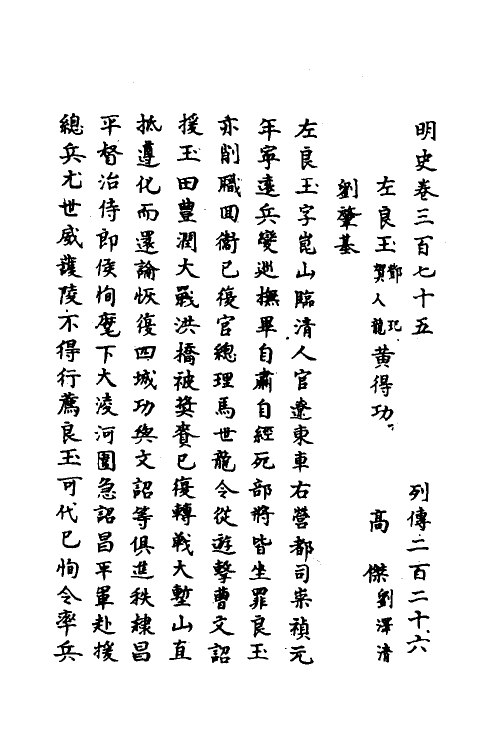 明史卷三百七十五 列傳二百二十六
左良玉 鄧玘 賀人龍 黄得功 高傑 劉澤清
劉肇基
左良玉字崑山臨清人官遼東車右營都司崇禎元
年寧遠兵變巡撫畢自肅自經死部將皆坐罪良玉
亦削職回衞已復官總理馬世龍令從遊擊曹文詔
援玉田豐潤大戰洪橋被奬賚已復轉戰大塹山直
抵遵化而還論恢復四城功與文詔等俱進秩隸昌
平督治侍郎侯恂麾下大凌河圍急詔昌平軍赴援
總兵尤世威護陵不得行薦良玉可代已恂令率兵